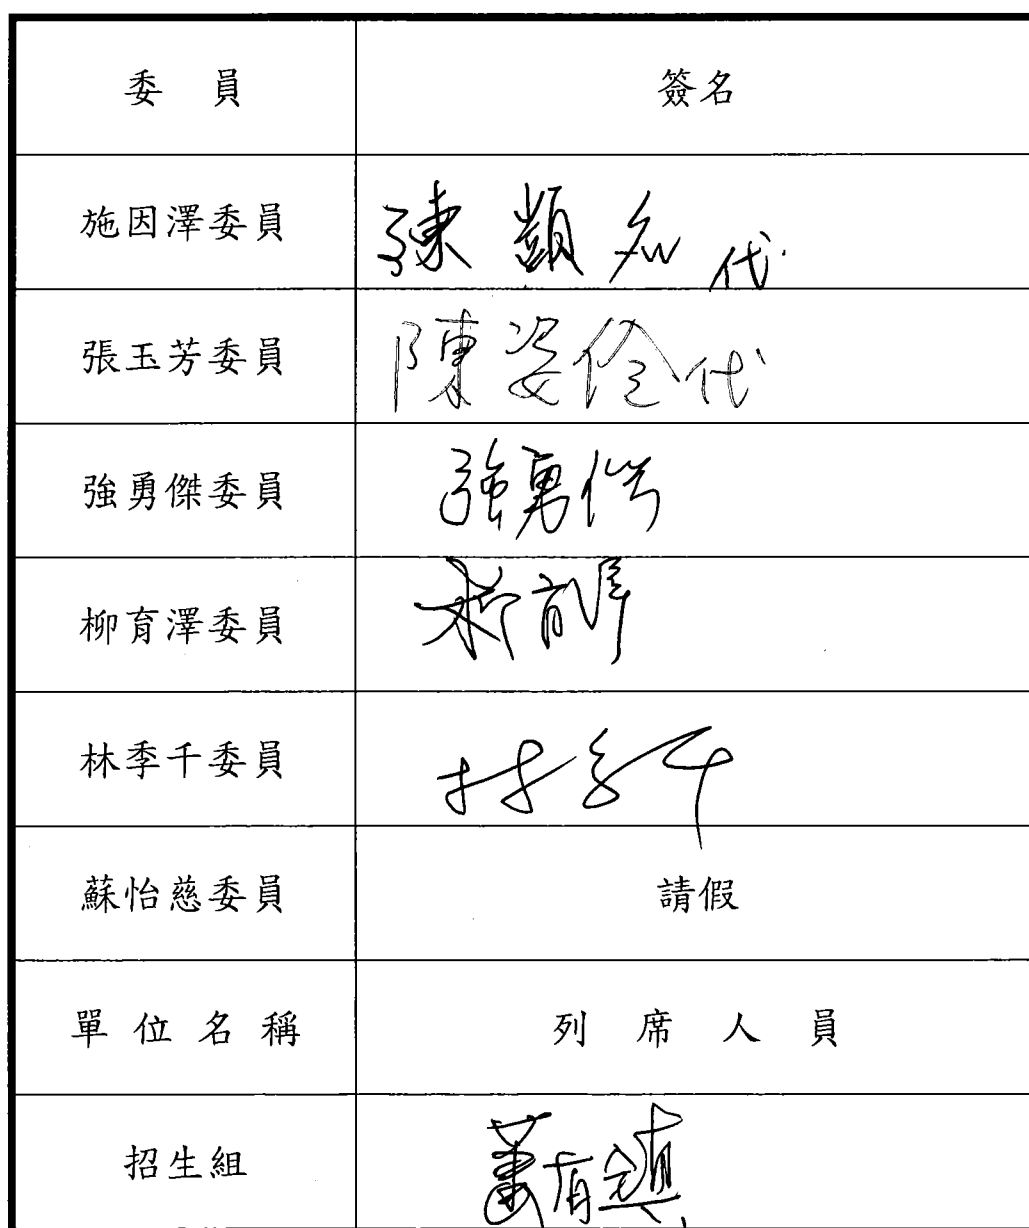 委 員 簽名
施因澤委員 陳 代
張玉芳委員 陳姿伶代
強勇傑委員 強勇傑
柳育澤委員 柳育澤
林季千委員 林季千
蘇怡慈委員 請假
單位名稱 列席人員
招生組